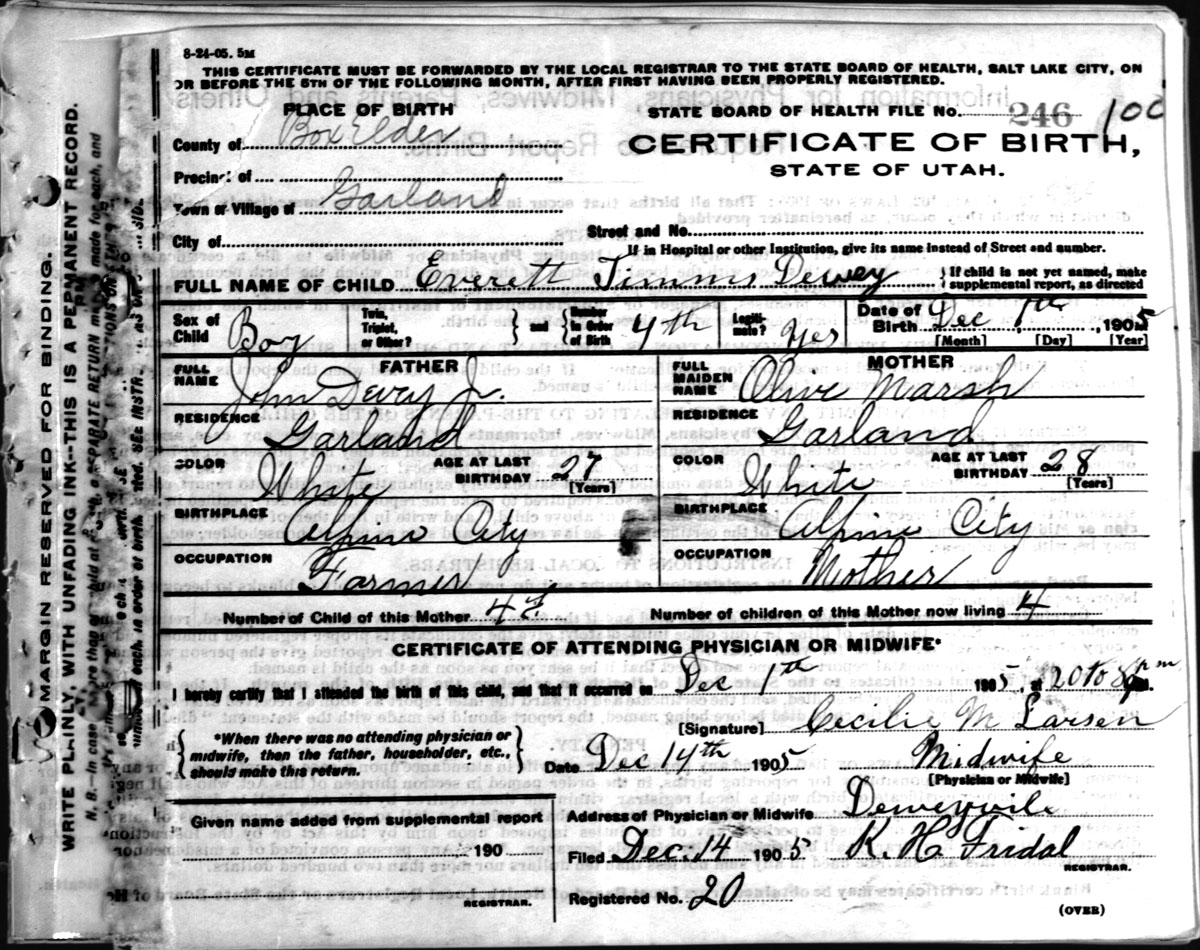 8-24-05. 5M
THIS CERTIFICATE MUST BE FORWARDED BY THE LOCAL REGISTRAR TO THE STATE BOARD OF HEALTH, SALT LAKE CITY, ON
OR BEFORE THE 5TH OF THE FOLLOWING MONTH, AFTER FIRST HAVING BEEN PROPERLY REGISTERED.
PLACE OF BIRTH
STATE BOARD OF HEALTH FILE No. 246 100
County of Box Elder
CERTIFICATE OF BIRTH,
STATE OF UTAH.
Precinct of
Town or Village of Garland
City of
Street and No.
If in Hospital or other Institution, give its name instead of Street and number.
FULL NAME OF CHILD Everett Timms Dewey
{If child is not yet named, make
supplemental report, as directed
Sex of Child Boy
Twin, Triplet, or Other?
} and {
Number in Order of Birth 4th
Legitimate? Yes
Date of Birth Dec 1th, 1905
[Month] [Day] [Year]
FATHER
FULL NAME John Dewey Jr.
RESIDENCE Garland
COLOR White
AGE AT LAST BIRTHDAY 27 [Years]
BIRTHPLACE Alpine City
OCCUPATION Farmer
MOTHER
FULL MAIDEN NAME Olive Marsh
RESIDENCE Garland
COLOR White
AGE AT LAST BIRTHDAY 28 [Years]
BIRTHPLACE Alpine City
OCCUPATION Mother
Number of Child of this Mother 4th
Number of children of this Mother now living 4
CERTIFICATE OF ATTENDING PHYSICIAN OR MIDWIFE*
I hereby certify that I attended the birth of this child, and that it occurred on Dec 1th 1905, at 20 to 8 pm.
{*When there was no attending physician or
midwife, then the father, householder, etc.,
should make this return.}
[Signature] Cecilie M Larsen
Date Dec 14th 1905
Midwife
[Physician or Midwife]
Given name added from supplemental report
190
REGISTRAR.
Address of Physician or Midwife Deweyvile
Filed Dec. 14 1905 K. H. Fridal
REGISTRAR.
Registered No. 20
(OVER)
MARGIN RESERVED FOR BINDING.
WRITE PLAINLY, WITH UNFADING INK--THIS IS A PERMANENT RECORD.
N. B.--In case of more than one child at a birth, a SEPARATE RETURN must be made for each, and
each, in order of birth, stated.